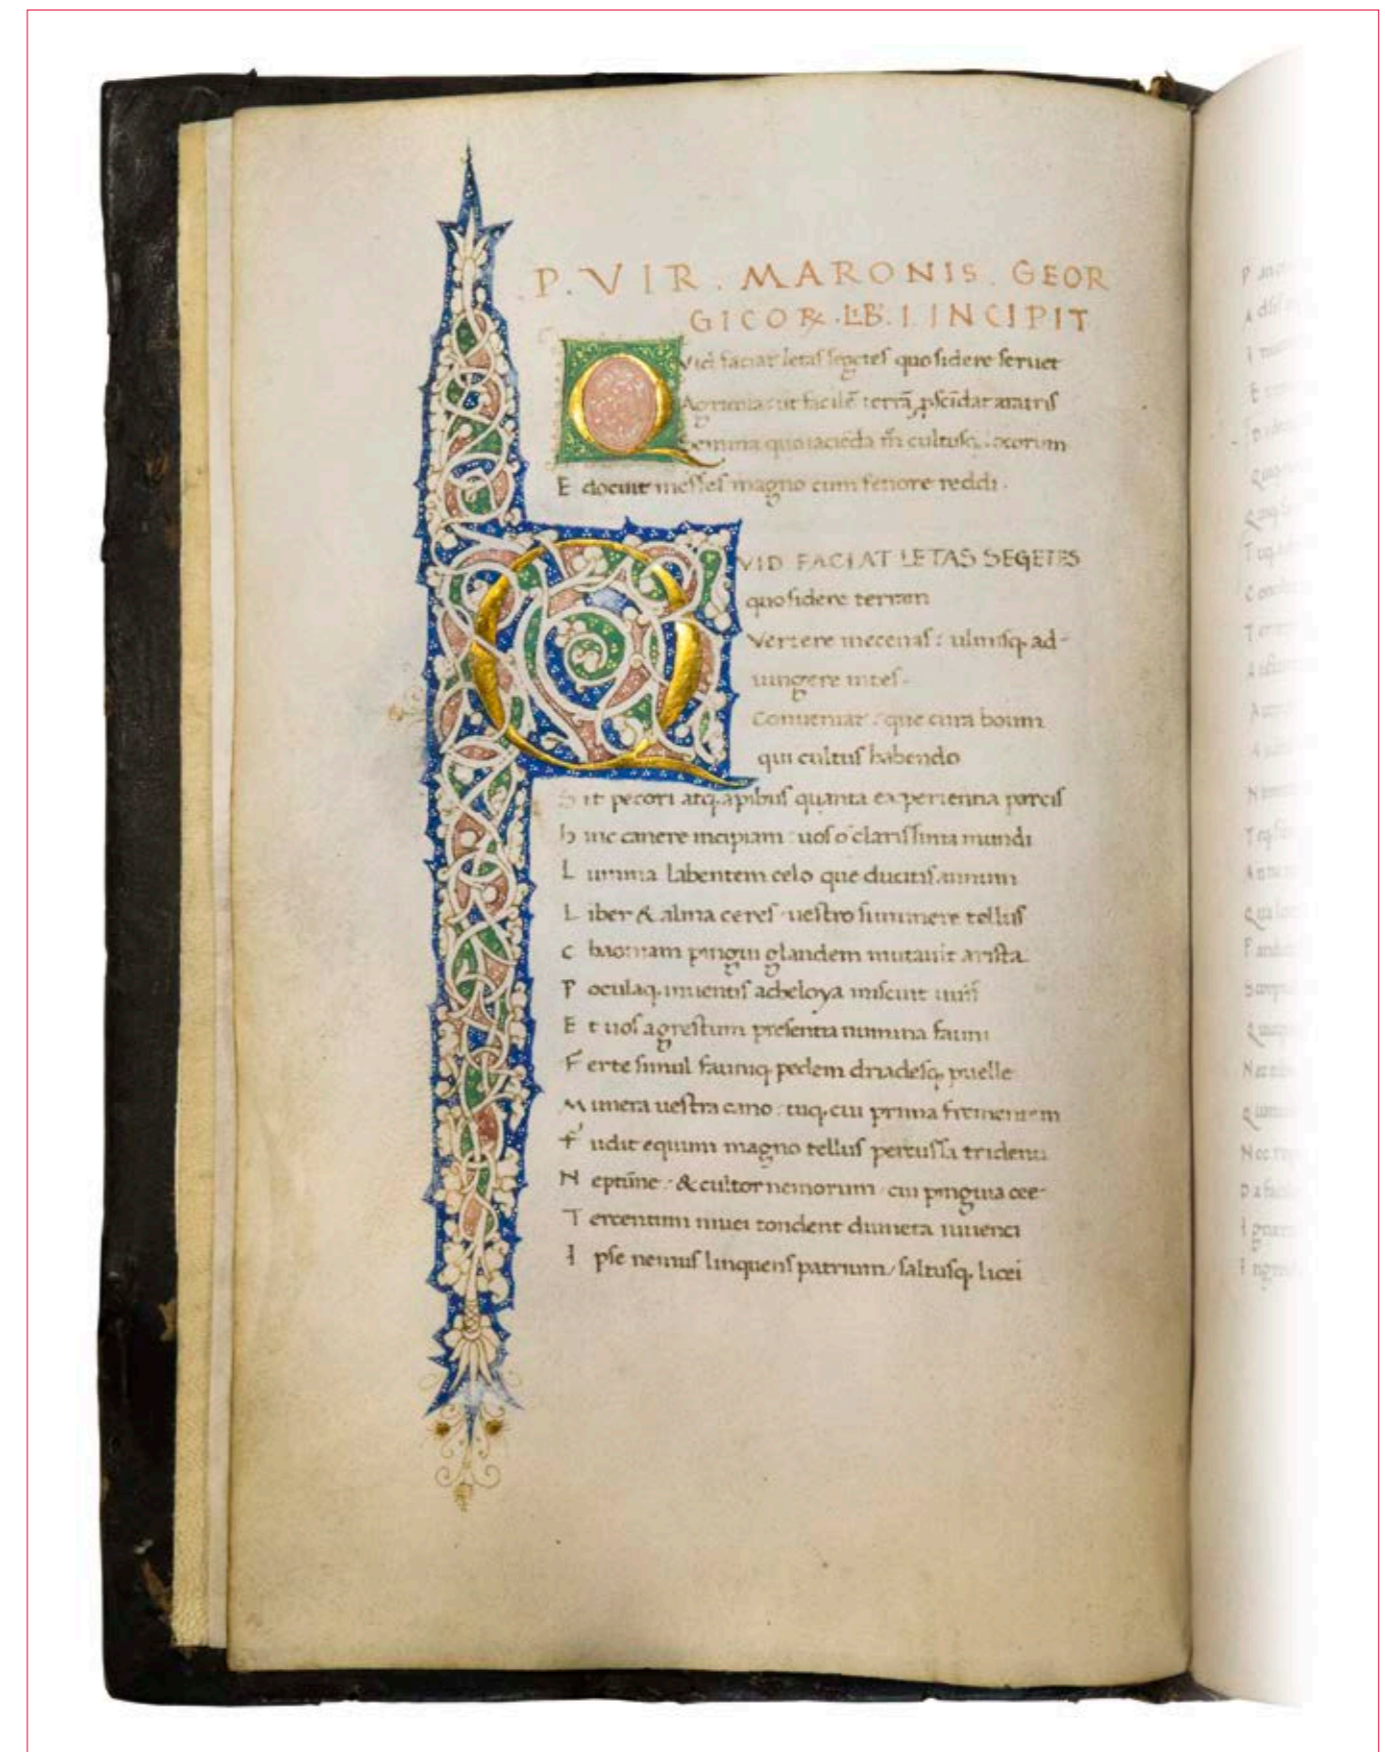 P. VIR. MARONIS. GEOR
GICOꝜ. LIB. I. INCIPIT
Qvid faciat letas segetes quo sidere seruet
Agricola: ut facilē terrā ꝓscīdat aratris
Semina quo iaciēda m̄ cultusq. locorum
E docuit messes magno cum fenore reddi.
QVID FACIAT LETAS SEGETES
quo sidere terram
Vertere mecenas: ulmisq. ad-
iungere uites.
Conueniat: que cura boum
qui cultus habendo
S it pecori atq. apibus quanta experientia parcis
h inc canere incipiam: uos o clarissima mundi
L umina labentem celo que ducitis annum
L iber & alma ceres uestro si munere tellus
C haoniam pingui glandem mutauit arista
P oculaq. inuentis acheloya miscuit uuis
E t uos agrestum presentia numina fauni
F erte simul fauniq. pedem driadesq. puelle
M unera uestra cano: tuq. cui prima frementem
F udit equum magno tellus percussa tridenti
N eptūne: & cultor nemorum cui pinguia cee
T ercentum niuei tondent dumeta iuuenci
I pse nemus linquens patrium / saltusq. licei